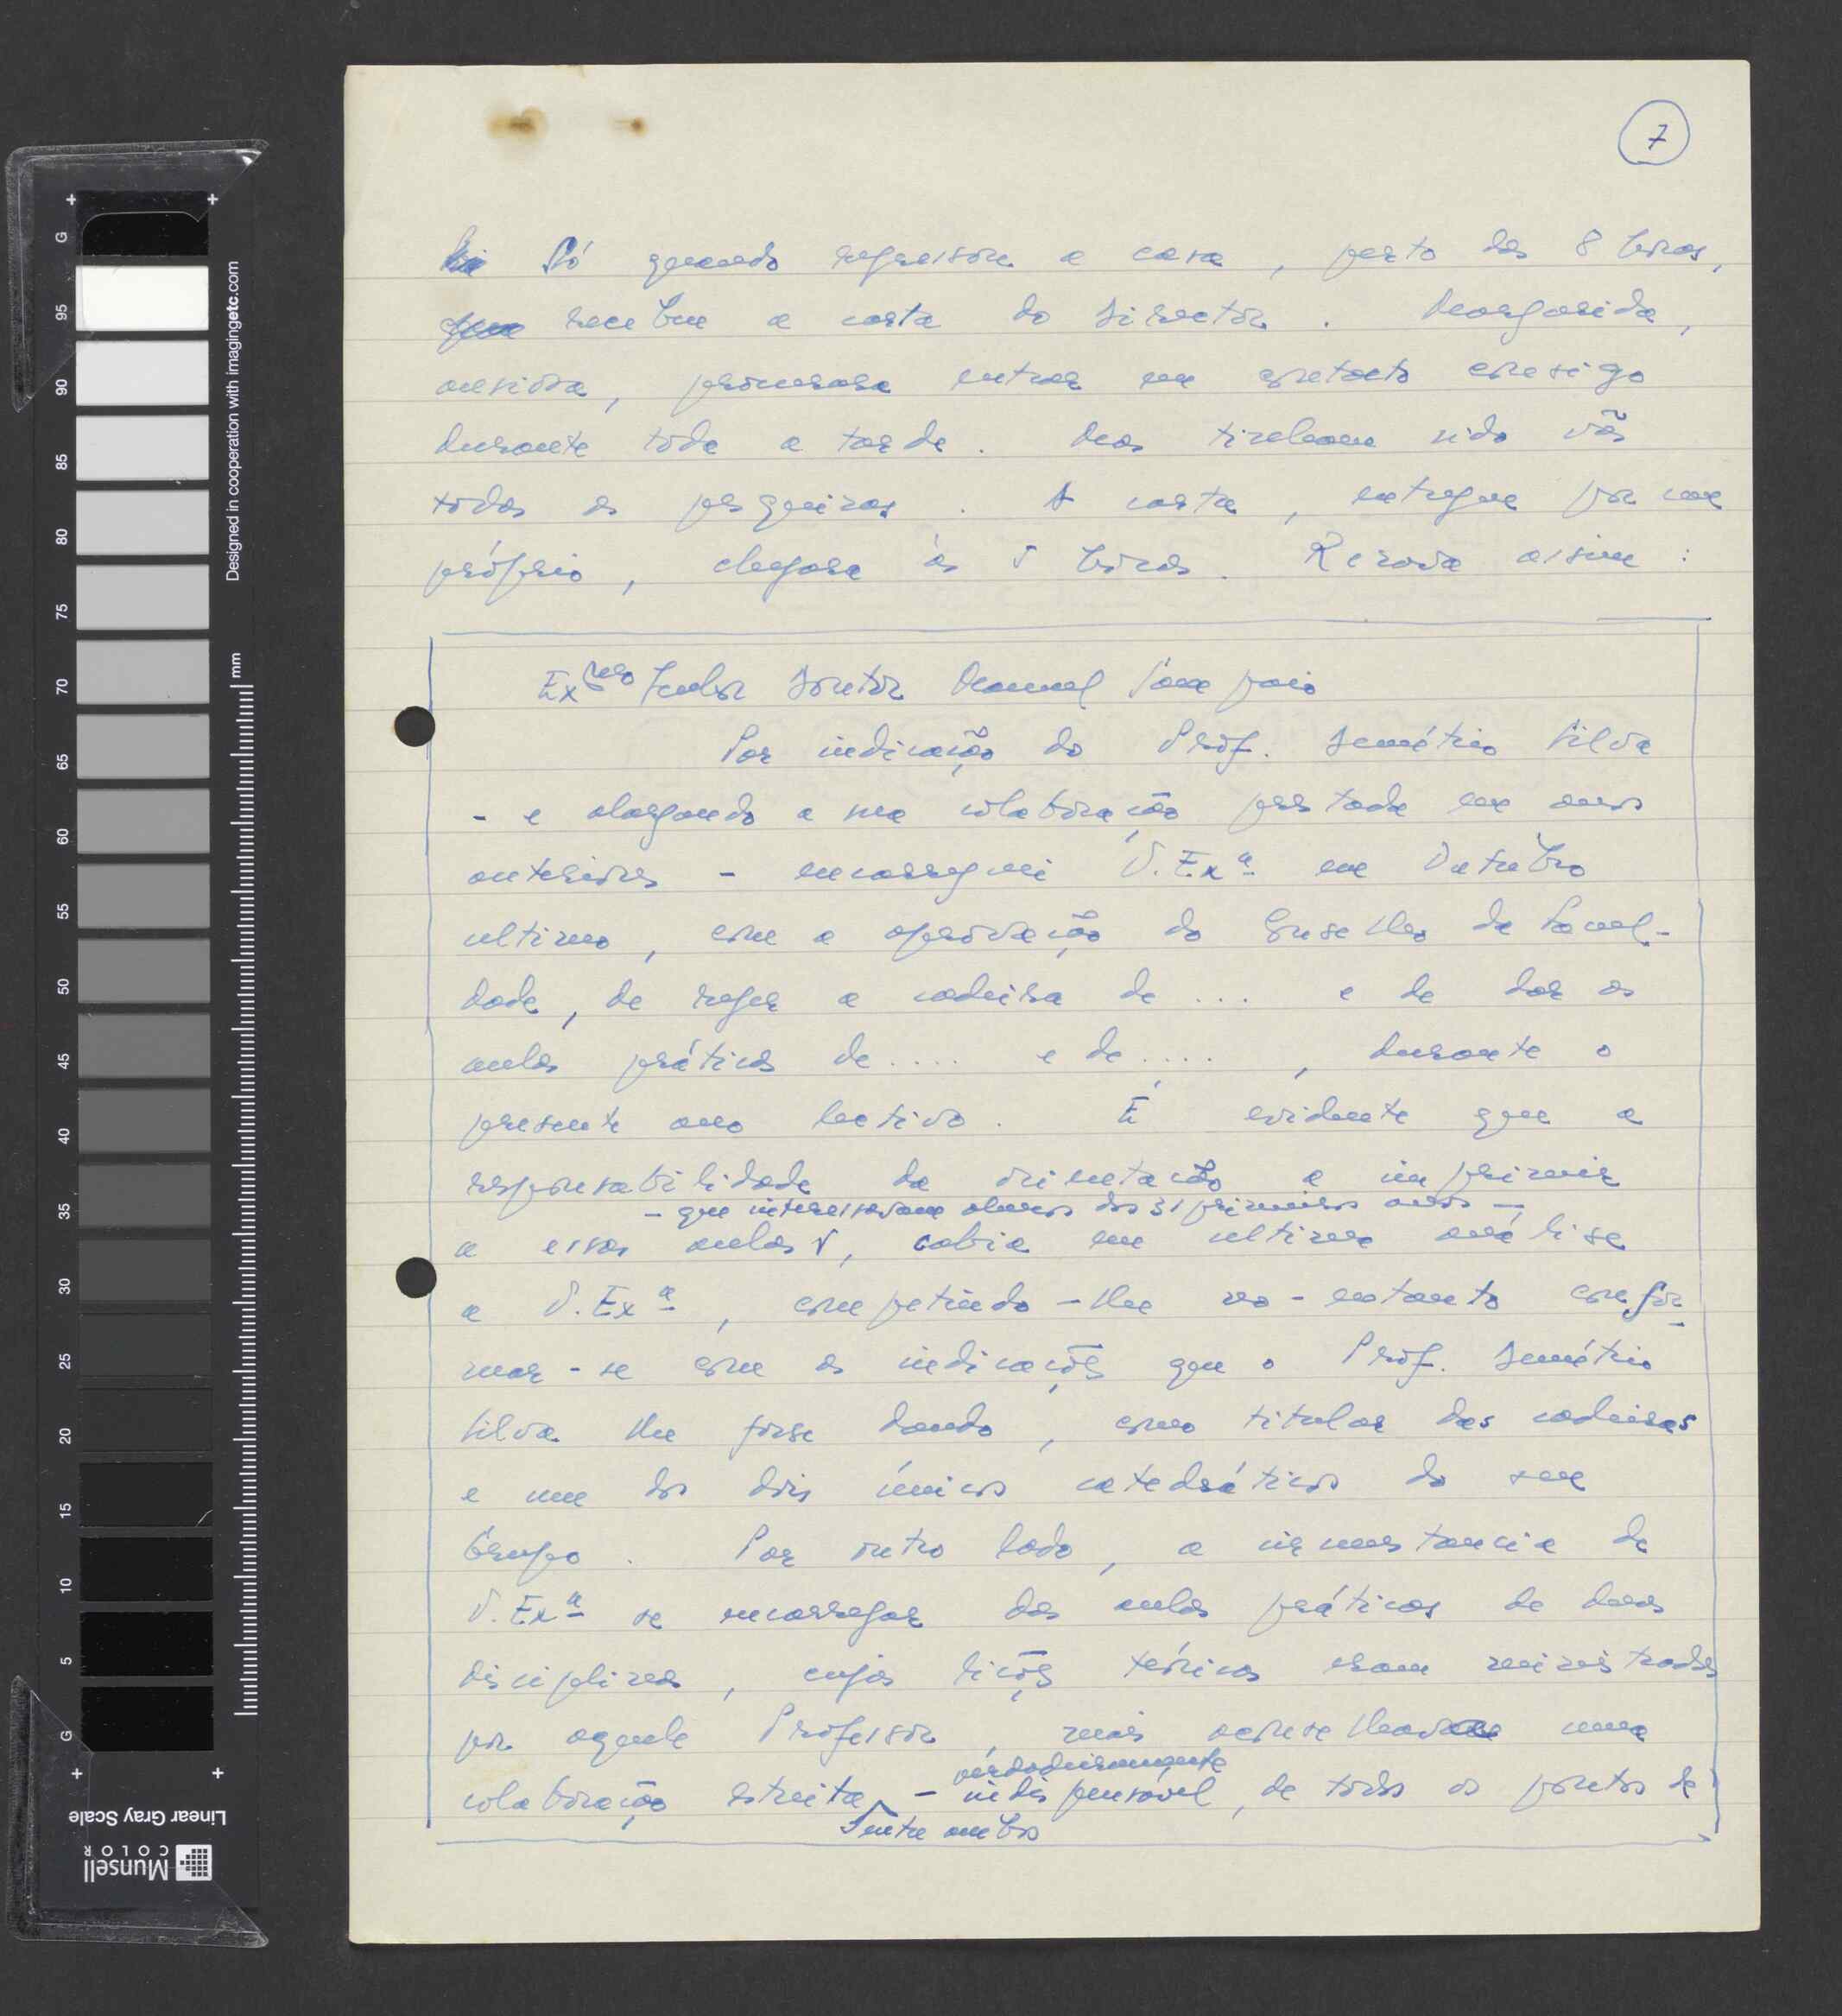 7
Só quando regressou a casa, perto das 8 horas,
recebeu a carta do Director. Margarida,
ansiosa, procurara entrar em contacto consigo
durante toda a tarde. Mas tinham sido vãs
todas as pesquisas. A carta, entregue por um
próprio, chegara às 5 horas. Rezava assim:
Exmo Senhor Doutor Manuel Sampaio
Por indicação do Prof. Demétrio Silva
- e alargando a sua colaboração prestada em anos
anteriores - encarreguei V. Exª em Outubro
ultimo, com a aprovação do Conselho da Facul-
dade, de reger a cadeira de ... e de dar as
aulas práticas de .... e de ....., durante o
presente ano lectivo. É evidente que a
responsabilidade da orientação a imprimir
- que interessavam alunos dos 3 primeiros anos -
a essas aulas, cabia em ultima análise
a V. Exª, competindo-lhe no-entanto confor-
mar-se com as indicações que o Prof. Demétrio
Silva lhe fosse dando, como titular das cadeiras
e um dos dois únicos catedráticos do seu
Grupo. Por outro lado, a circunstancia de
V. Exª se encarregar das aulas práticas de duas
disciplinas, cujas lições teóricas eram ministradas
por aquele Professor, mais aconselhava uma
verdadeiramente
colaboração estreita - indispensável, de todos os pontos de
entre ambos
Designed in cooperation with imagingetc.com
mm
G
95
90
85
80
75
70
65
60
55
50
45
40
35
30
25
20
15
10
5
G
Linear Gray Scale
Munsell
COLOR